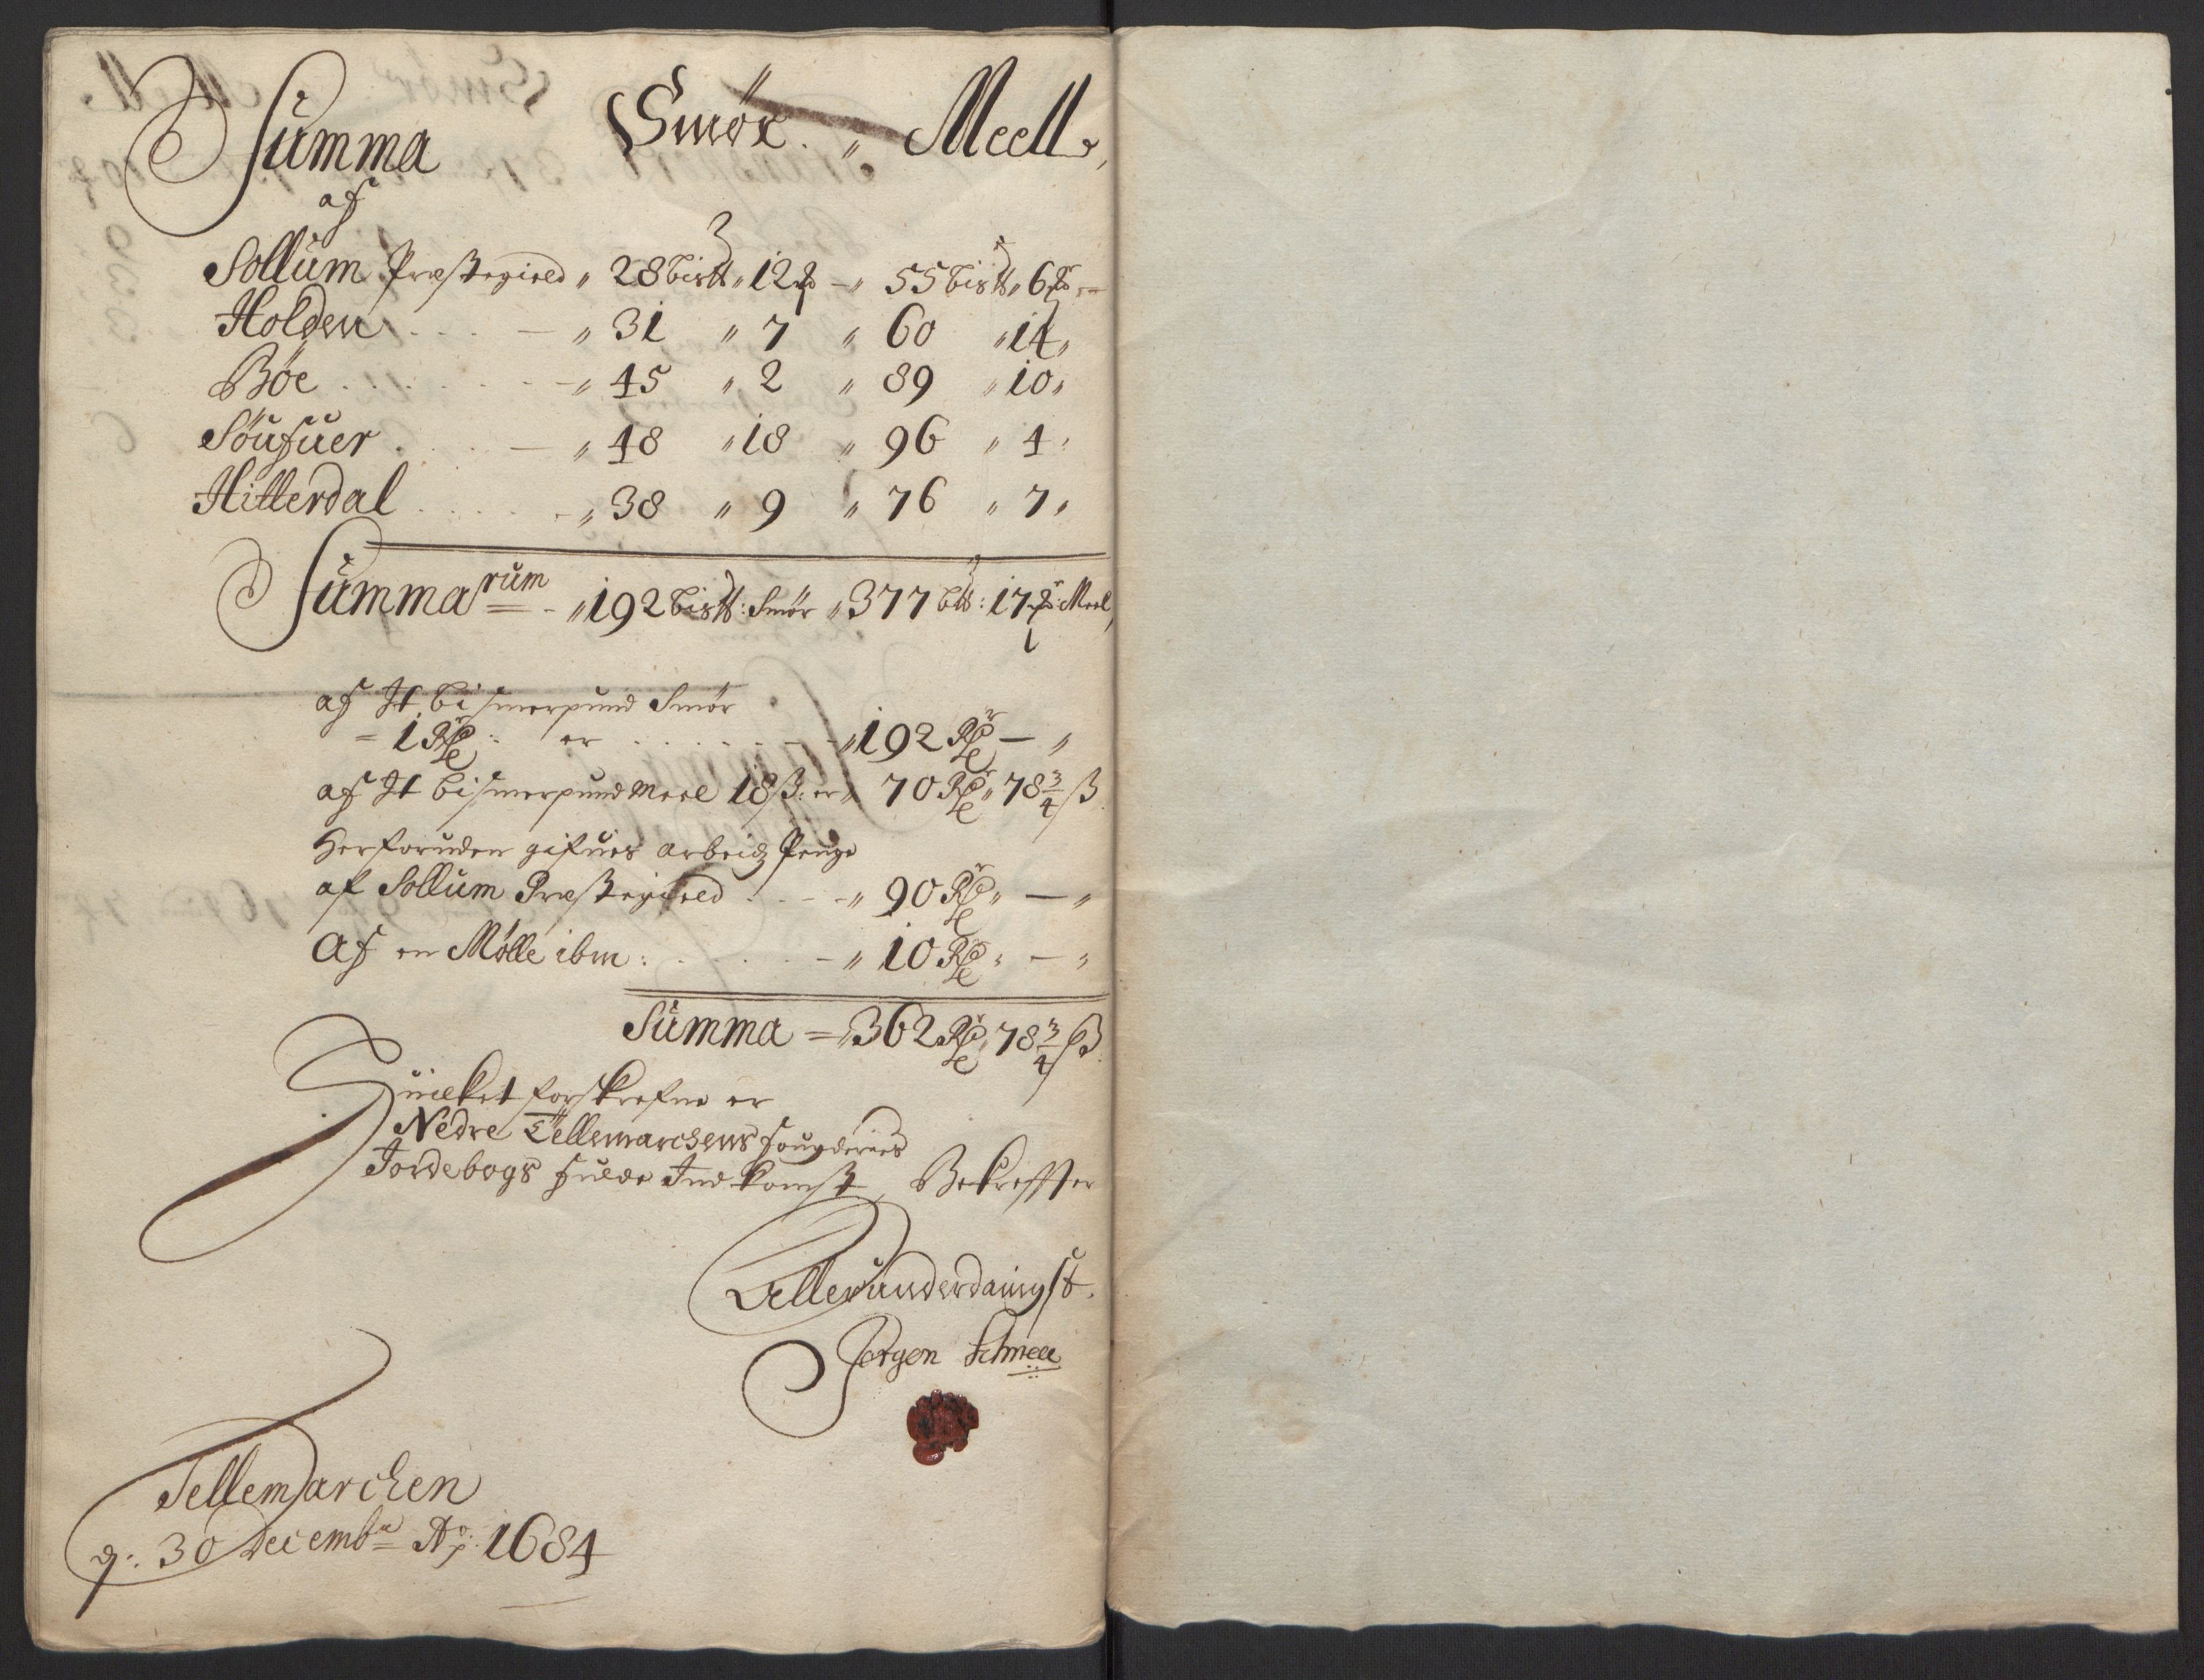 Summa Smör. „ Meell,
af
Sollum Præstegield „ 28 bis℔ „ 12 ₰ – „ 55 bis℔ „ 6 ₰ –
Holden . . . – „ 31 „ 7 „ 60 „ 14 „
Böe . . . . . . – „ 45 „ 2 „ 89 „ 10 „
Söufuer . . . – „ 48 „ 18 „ 96 „ 4 „
Hitterdal . . . . . – „ 38 „ 9 „ 76 „ 7 „
Summarum = - „ 192 bis℔: Smör „ 377 b℔: 17 ₰: Meel,
af It bismerpund Smör
= 1 Rdr: er . . . . . . – „ 192 Rdr – „
af It bismerpund Meel 18 ß: er „ 70 Rdr „ 78 3/4 ß
Herforuden gifues arbeidz Penge
af Sollum Præstegield . . - - „ 90 Rdr „ – „
Af en Mölle ibm: . . . . . – „ 10 Rdr „ – „
Summa = „ 362 Rdr „ 78 3/4 ß
Huilket forskrefne er
Nedre Tellemarchens fougderies
Jordebogs fulde Indkomst, Bekreffter
Allerunderdaingst.
Jörgen Schmee
Tellemarchen
d: 30 Decembr Ao: 1684